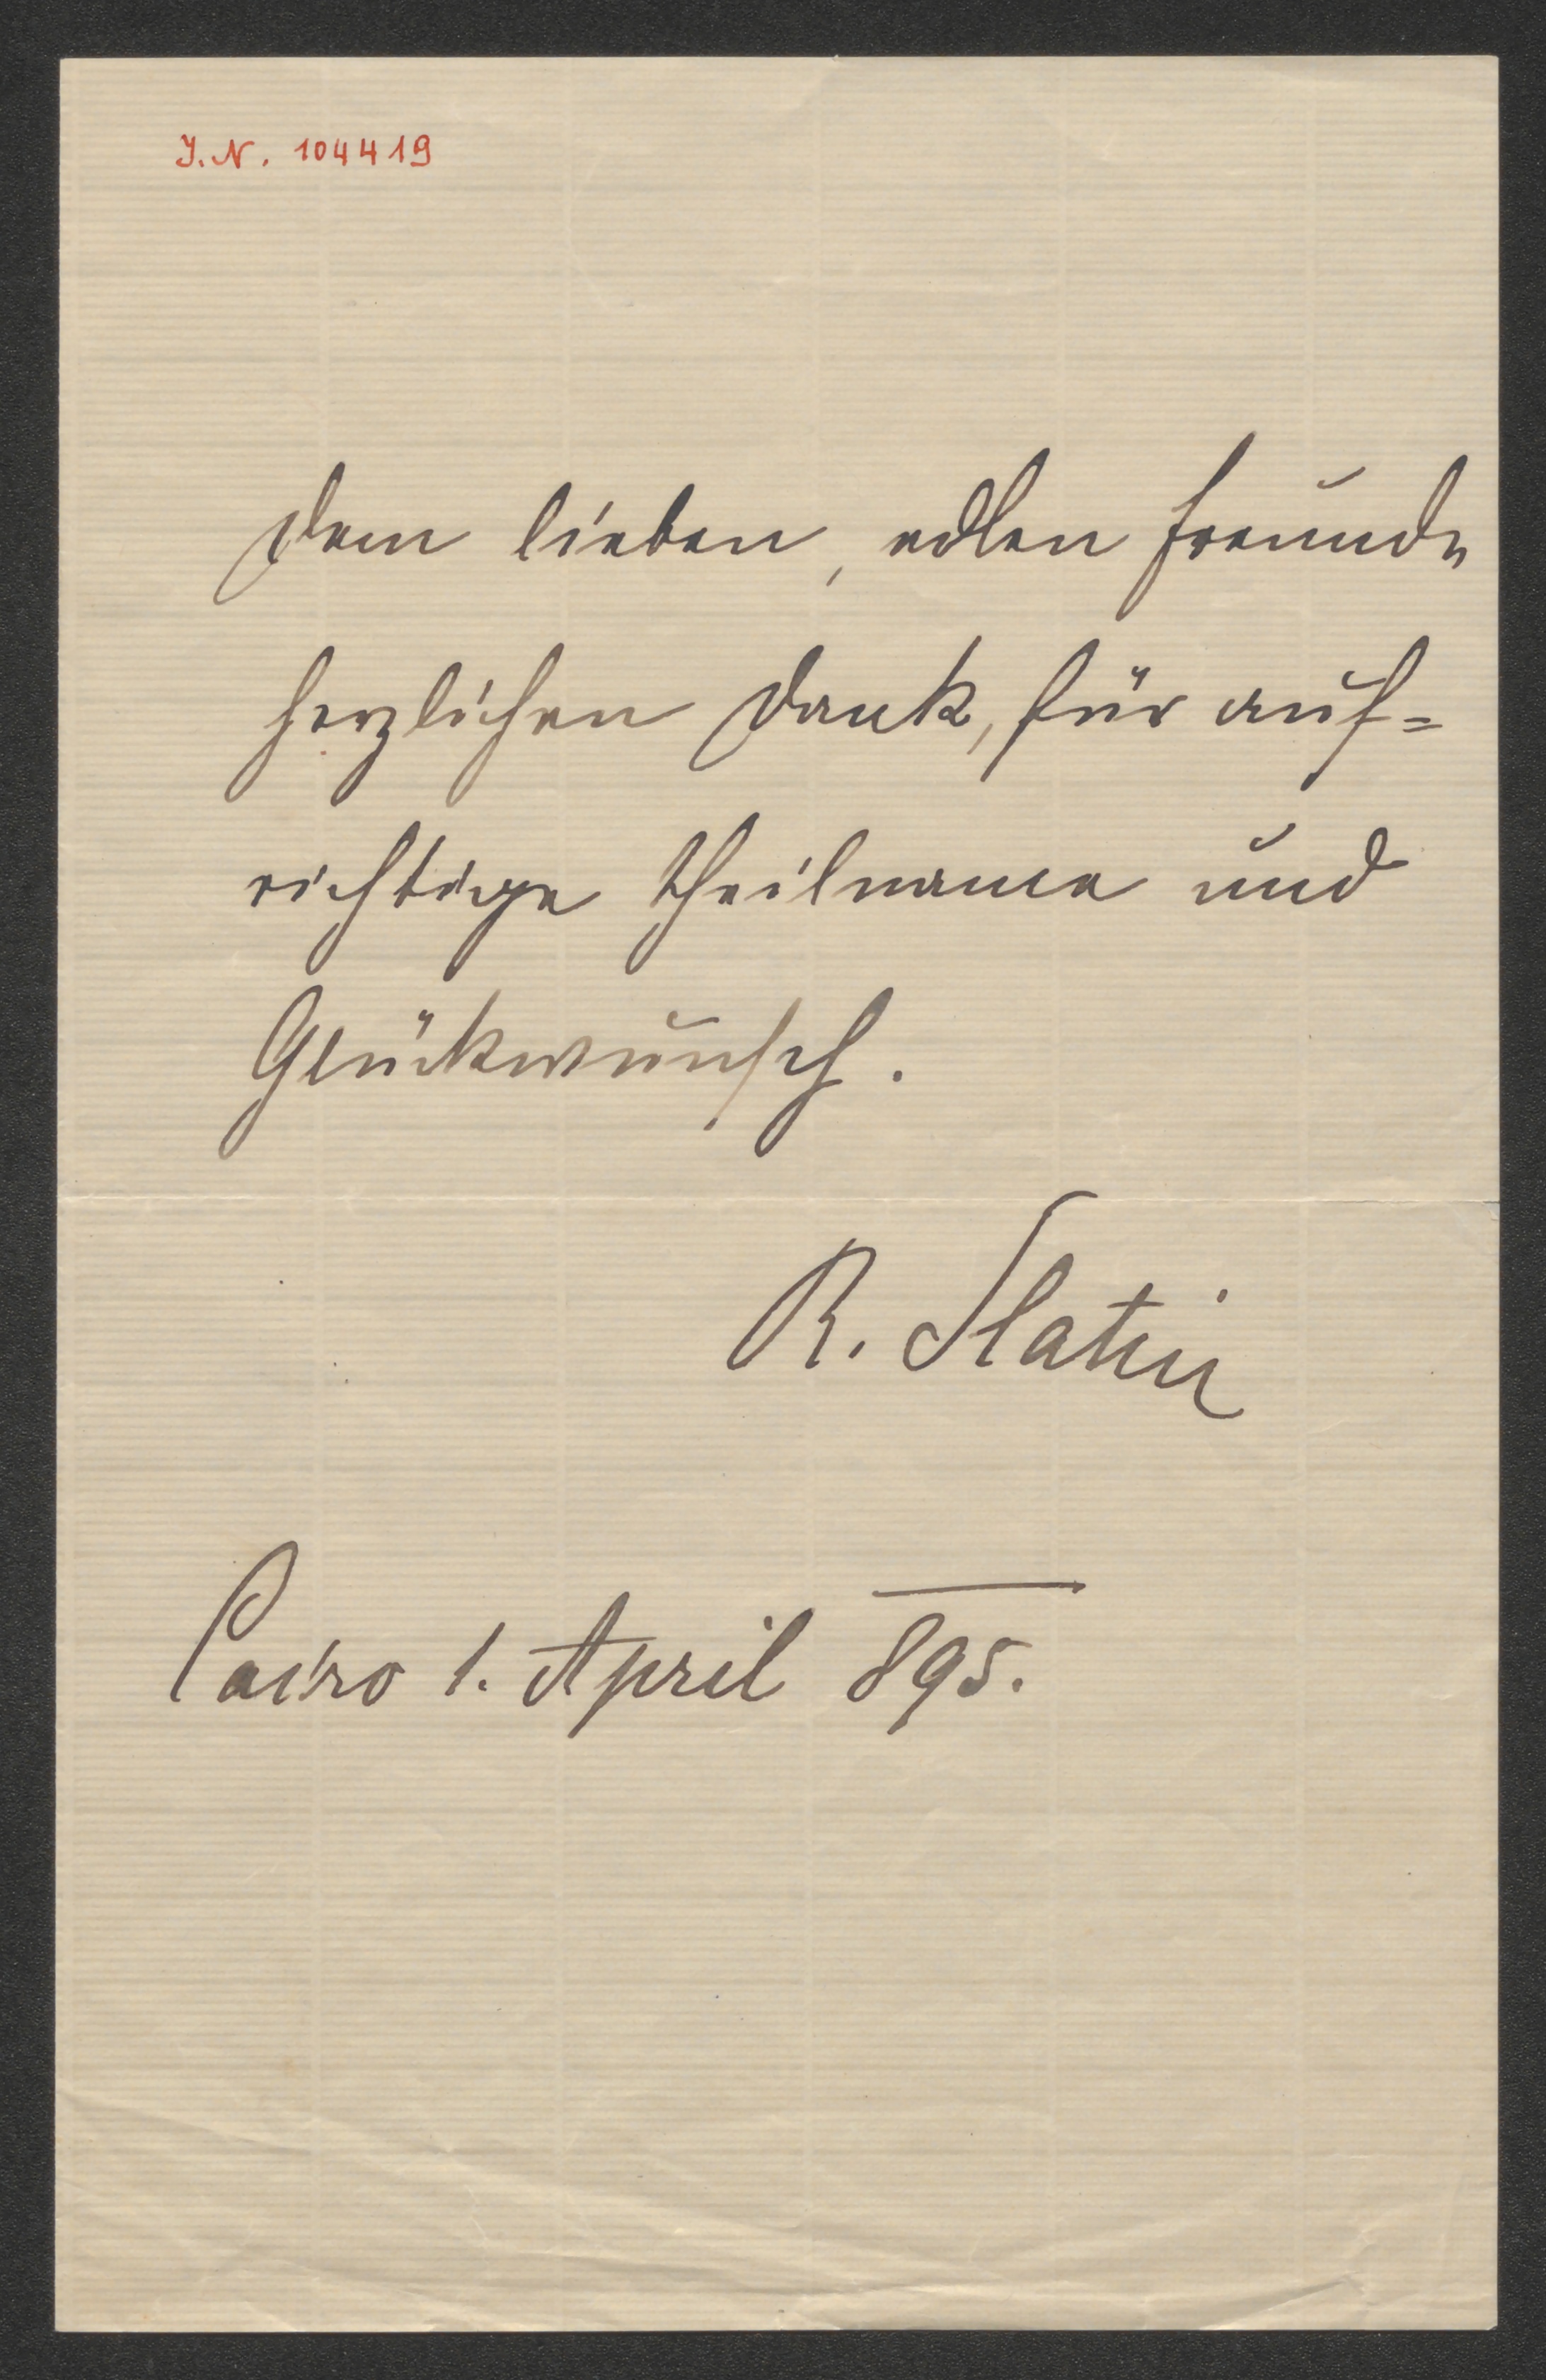 J.N. 104419
Dem lieben, edlen Freunde
herzlichen Dank, für auf=
richtige Theilname und
Glückwunsch.
R. Slatin
Cairo 1. April 895.